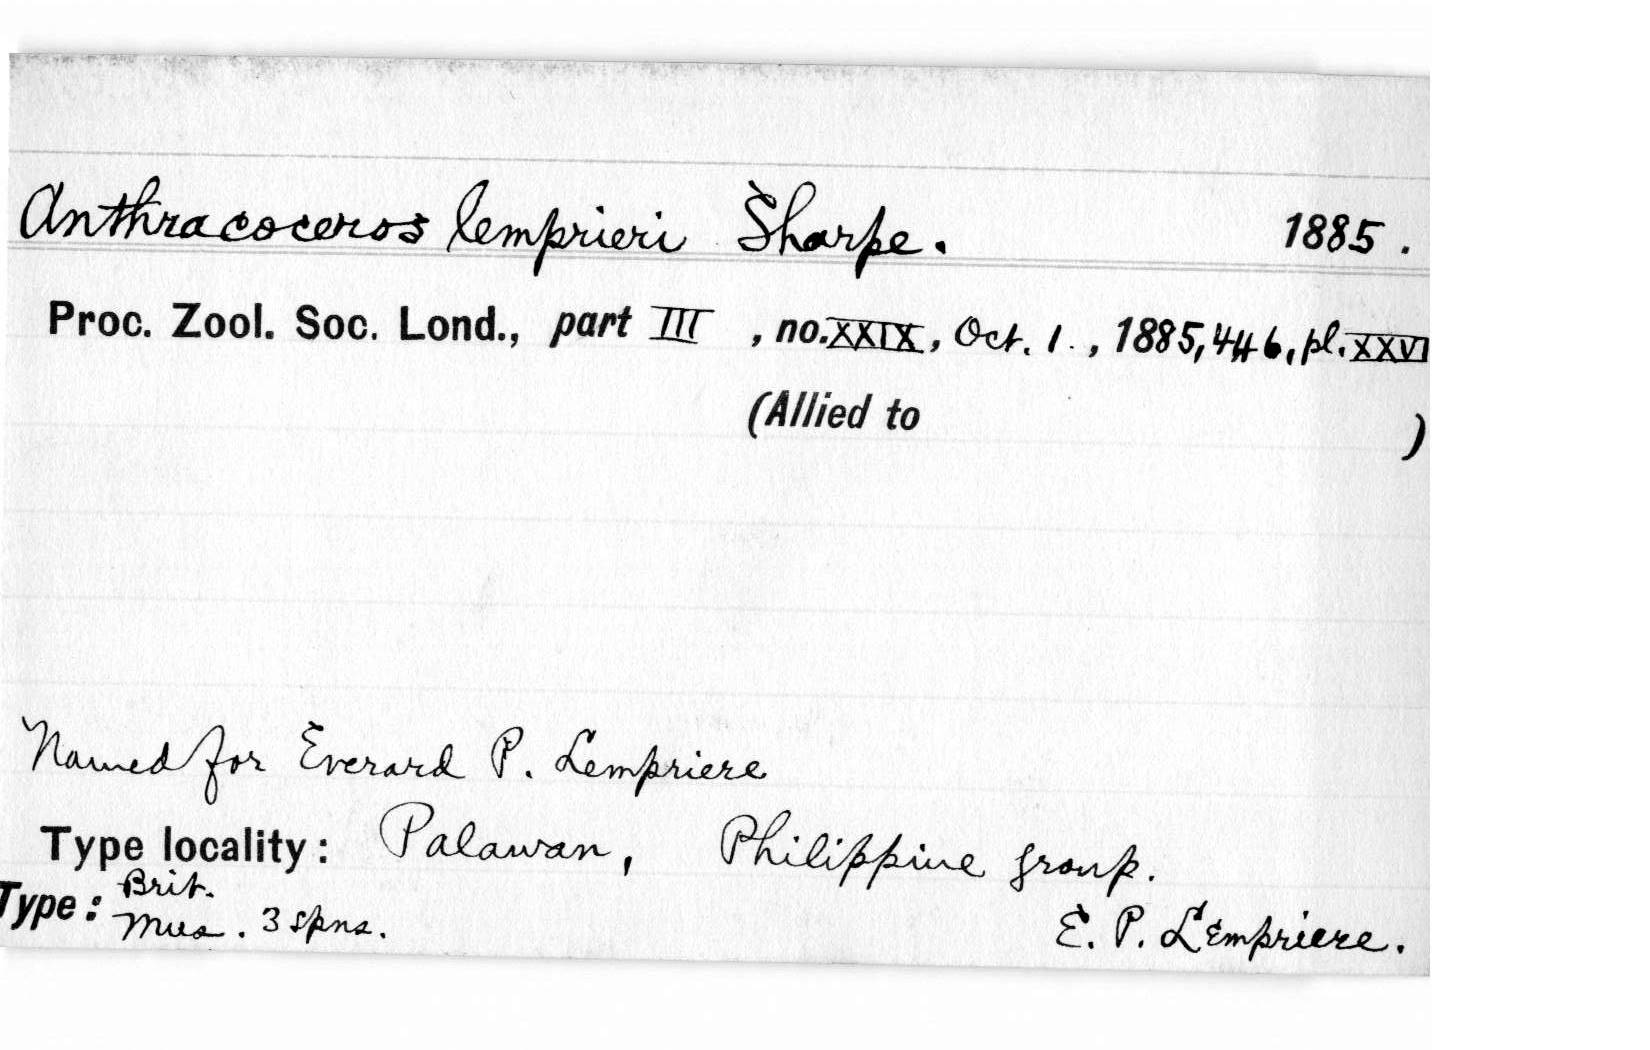 Anthracoceros lemprieri Sharpe. 1885.
Proc. Zool. Soc. Lond., part III, no. XXIX, Oct. 1., 1885, 446, pl. XXVI
(Allied to )
Named for Everard P. Lempriere
Type locality: Palawan, Philippine group.
Type: Brit. Mus. 3 spns.
E. P. Lempriere.